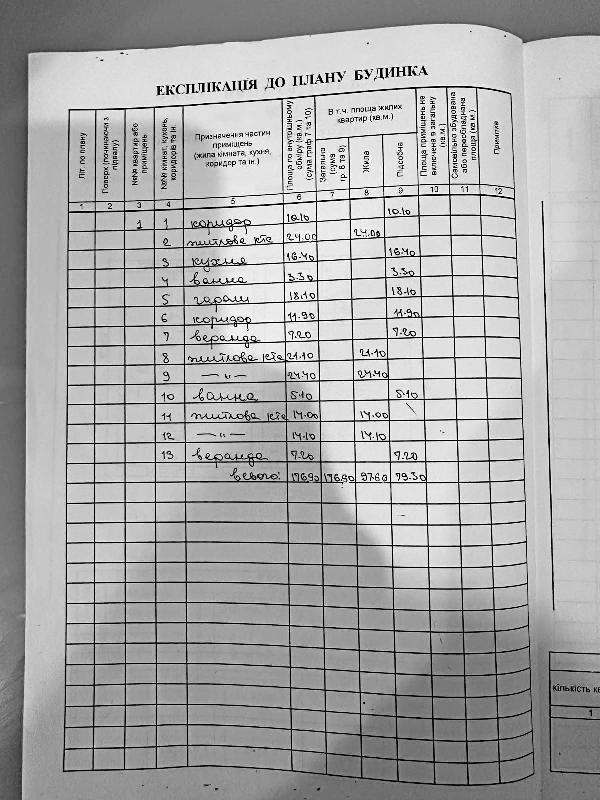 ЕКСПЛІКАЦІЯ ДО ПЛАНУ БУДИНКА
Літ. по плану
Поверх (починаючи з підвалу)
№№ квартир або приміщень
№№ кімнат, кухонь, коридорів та ін.
Призначення частин приміщень (жила кімната, кухня, коридор та ін.)
Площа по внутрішньому обміру (кв.м.) (сума граф 7 та 10)
В т.ч. площа жилих квартир (кв.м.)
Загальна (сума гр. 8 та 9)
Жила
Підсобна
Площа приміщень не включена в загальну (кв.м.)
Самовільно збудована або переобладнана площа (кв.м.)
Примітка
1 2 3 4 5 6 7 8 9 10 11 12
1 1 коридор 10.10 10.10
2 житлова кта 24.00 24.00
3 кухня 16.40 16.40
4 ванна 3.30 3.30
5 гараж 18.10 18.10
6 коридор 11.90 11.90
7 веранда 7.20 7.20
8 житлова кта 21.10 21.10
9 —"— 24.40 24.40
10 ванна 5.10 5.10
11 житлова кта 14.00 14.00
12 —"— 14.10 14.10
13 веранда 7.20 7.20
всього: 176.90 176.90 97.60 79.30
КІЛЬКІСТЬ КВ
1